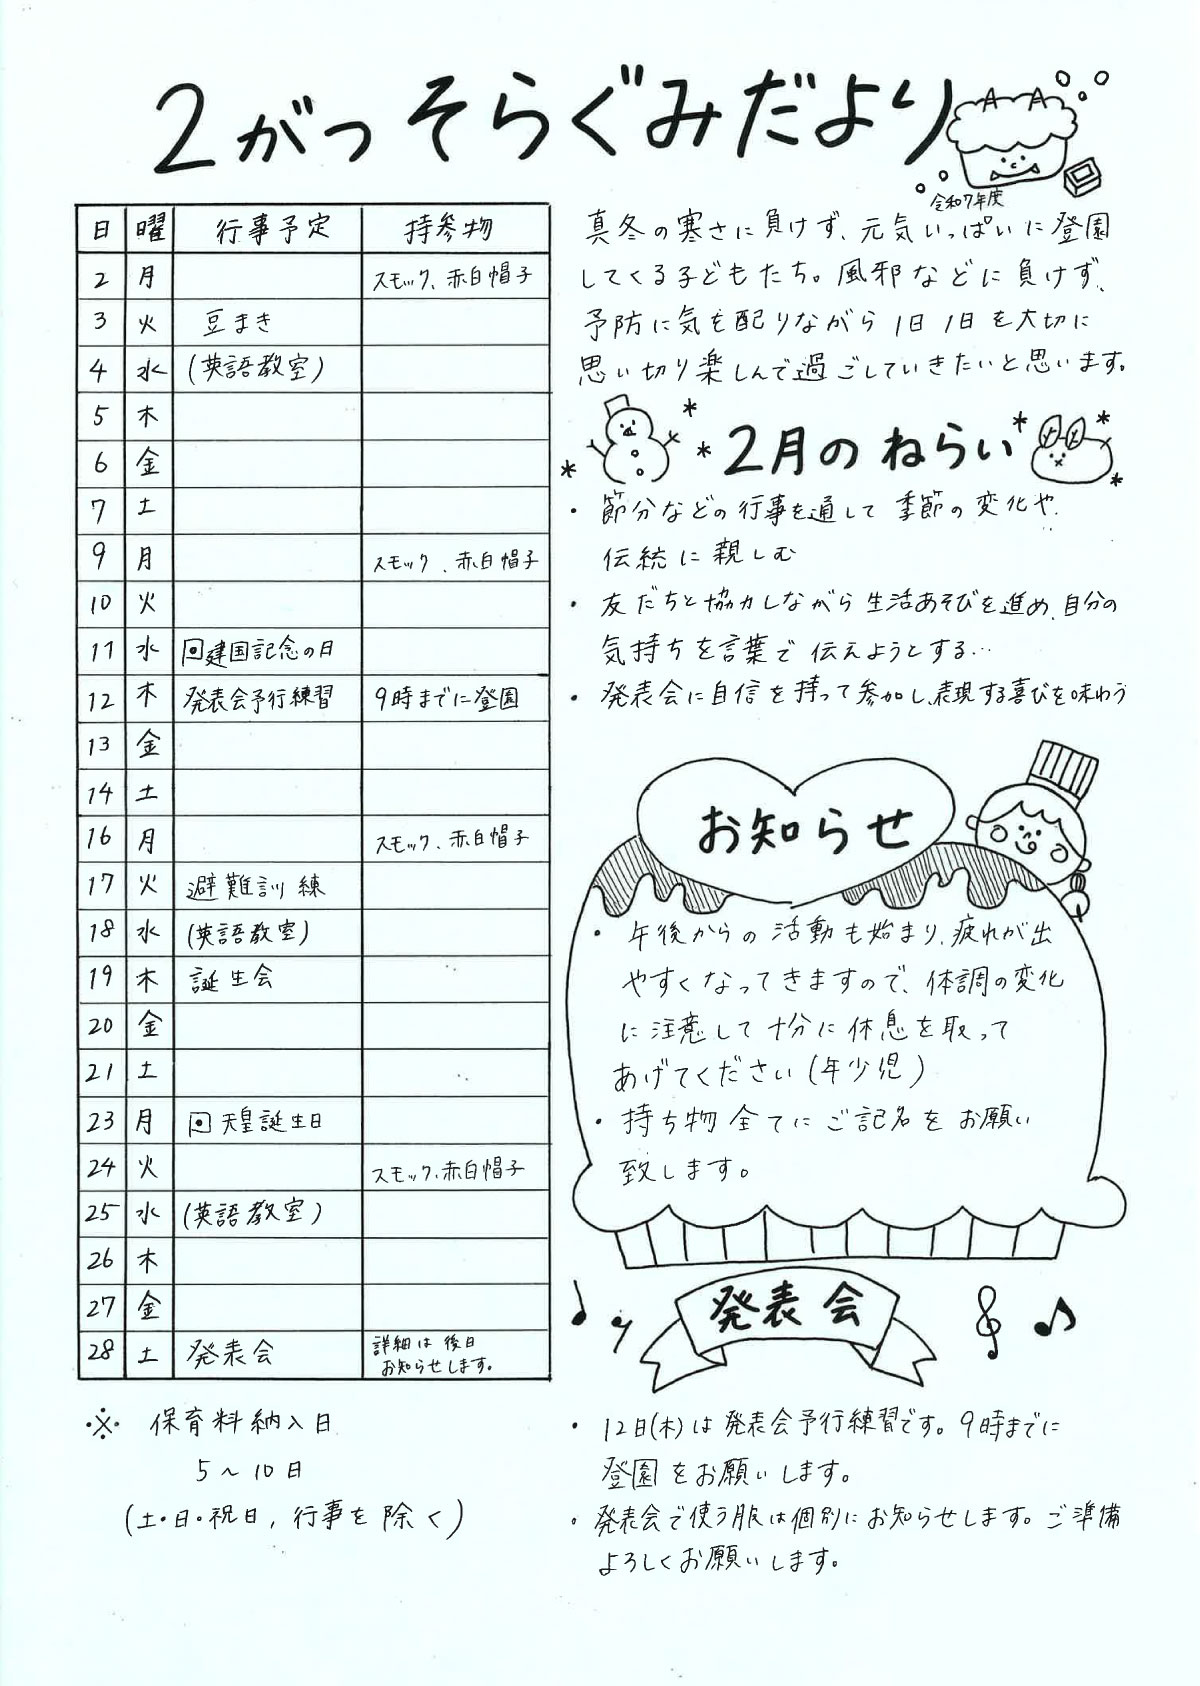 2がつ そらぐみだより
令和7年度
日 曜 行事予定 持参物
2 月 スモック、赤白帽子
3 火 豆まき
4 水 (英語教室)
5 木
6 金
7 土
9 月 スモック、赤白帽子
10 火
11 水 建国記念の日
12 木 発表会予行練習 9時までに登園
13 金
14 土
16 月 スモック、赤白帽子
17 火 避難訓練
18 水 (英語教室)
19 木 誕生会
20 金
21 土
23 月 天皇誕生日
24 火 スモック、赤白帽子
25 水 (英語教室)
26 木
27 金
28 土 発表会 詳細は後日
お知らせします。
※ 保育料納入日
5～10日
(土・日・祝日, 行事を除く)
真冬の寒さに負けず、元気いっぱいに登園
してくる子どもたち。風邪などに負けず、
予防に気を配りながら1日1日を大切に
思い切り楽しんで過ごしていきたいと思います。
2月のねらい
・節分などの行事を通して季節の変化や、
伝統に親しむ
・友だちと協力しながら生活あそびを進め、自分の
気持ちを言葉で伝えようとする…
・発表会に自信を持って参加し、表現する喜びを味わう
お知らせ
・午後からの活動も始まり、疲れが出
やすくなってきますので、体調の変化
に注意して十分に休息を取って
あげてください(年少児)
・持ち物全てにご記名をお願い
致します。
発表会
・12日(木)は発表会予行練習です。9時までに
登園をお願いします。
・発表会で使う服は個別にお知らせします。ご準備
よろしくお願いします。